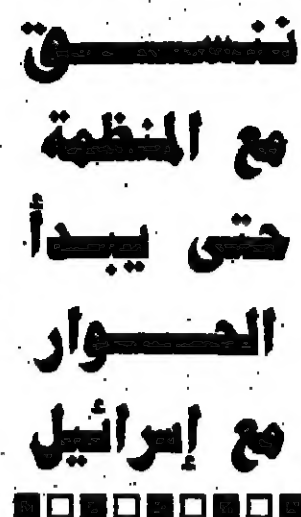 ننسق
مع المنظمة
حتى يبدأ
الحوار
مع إسرائيل